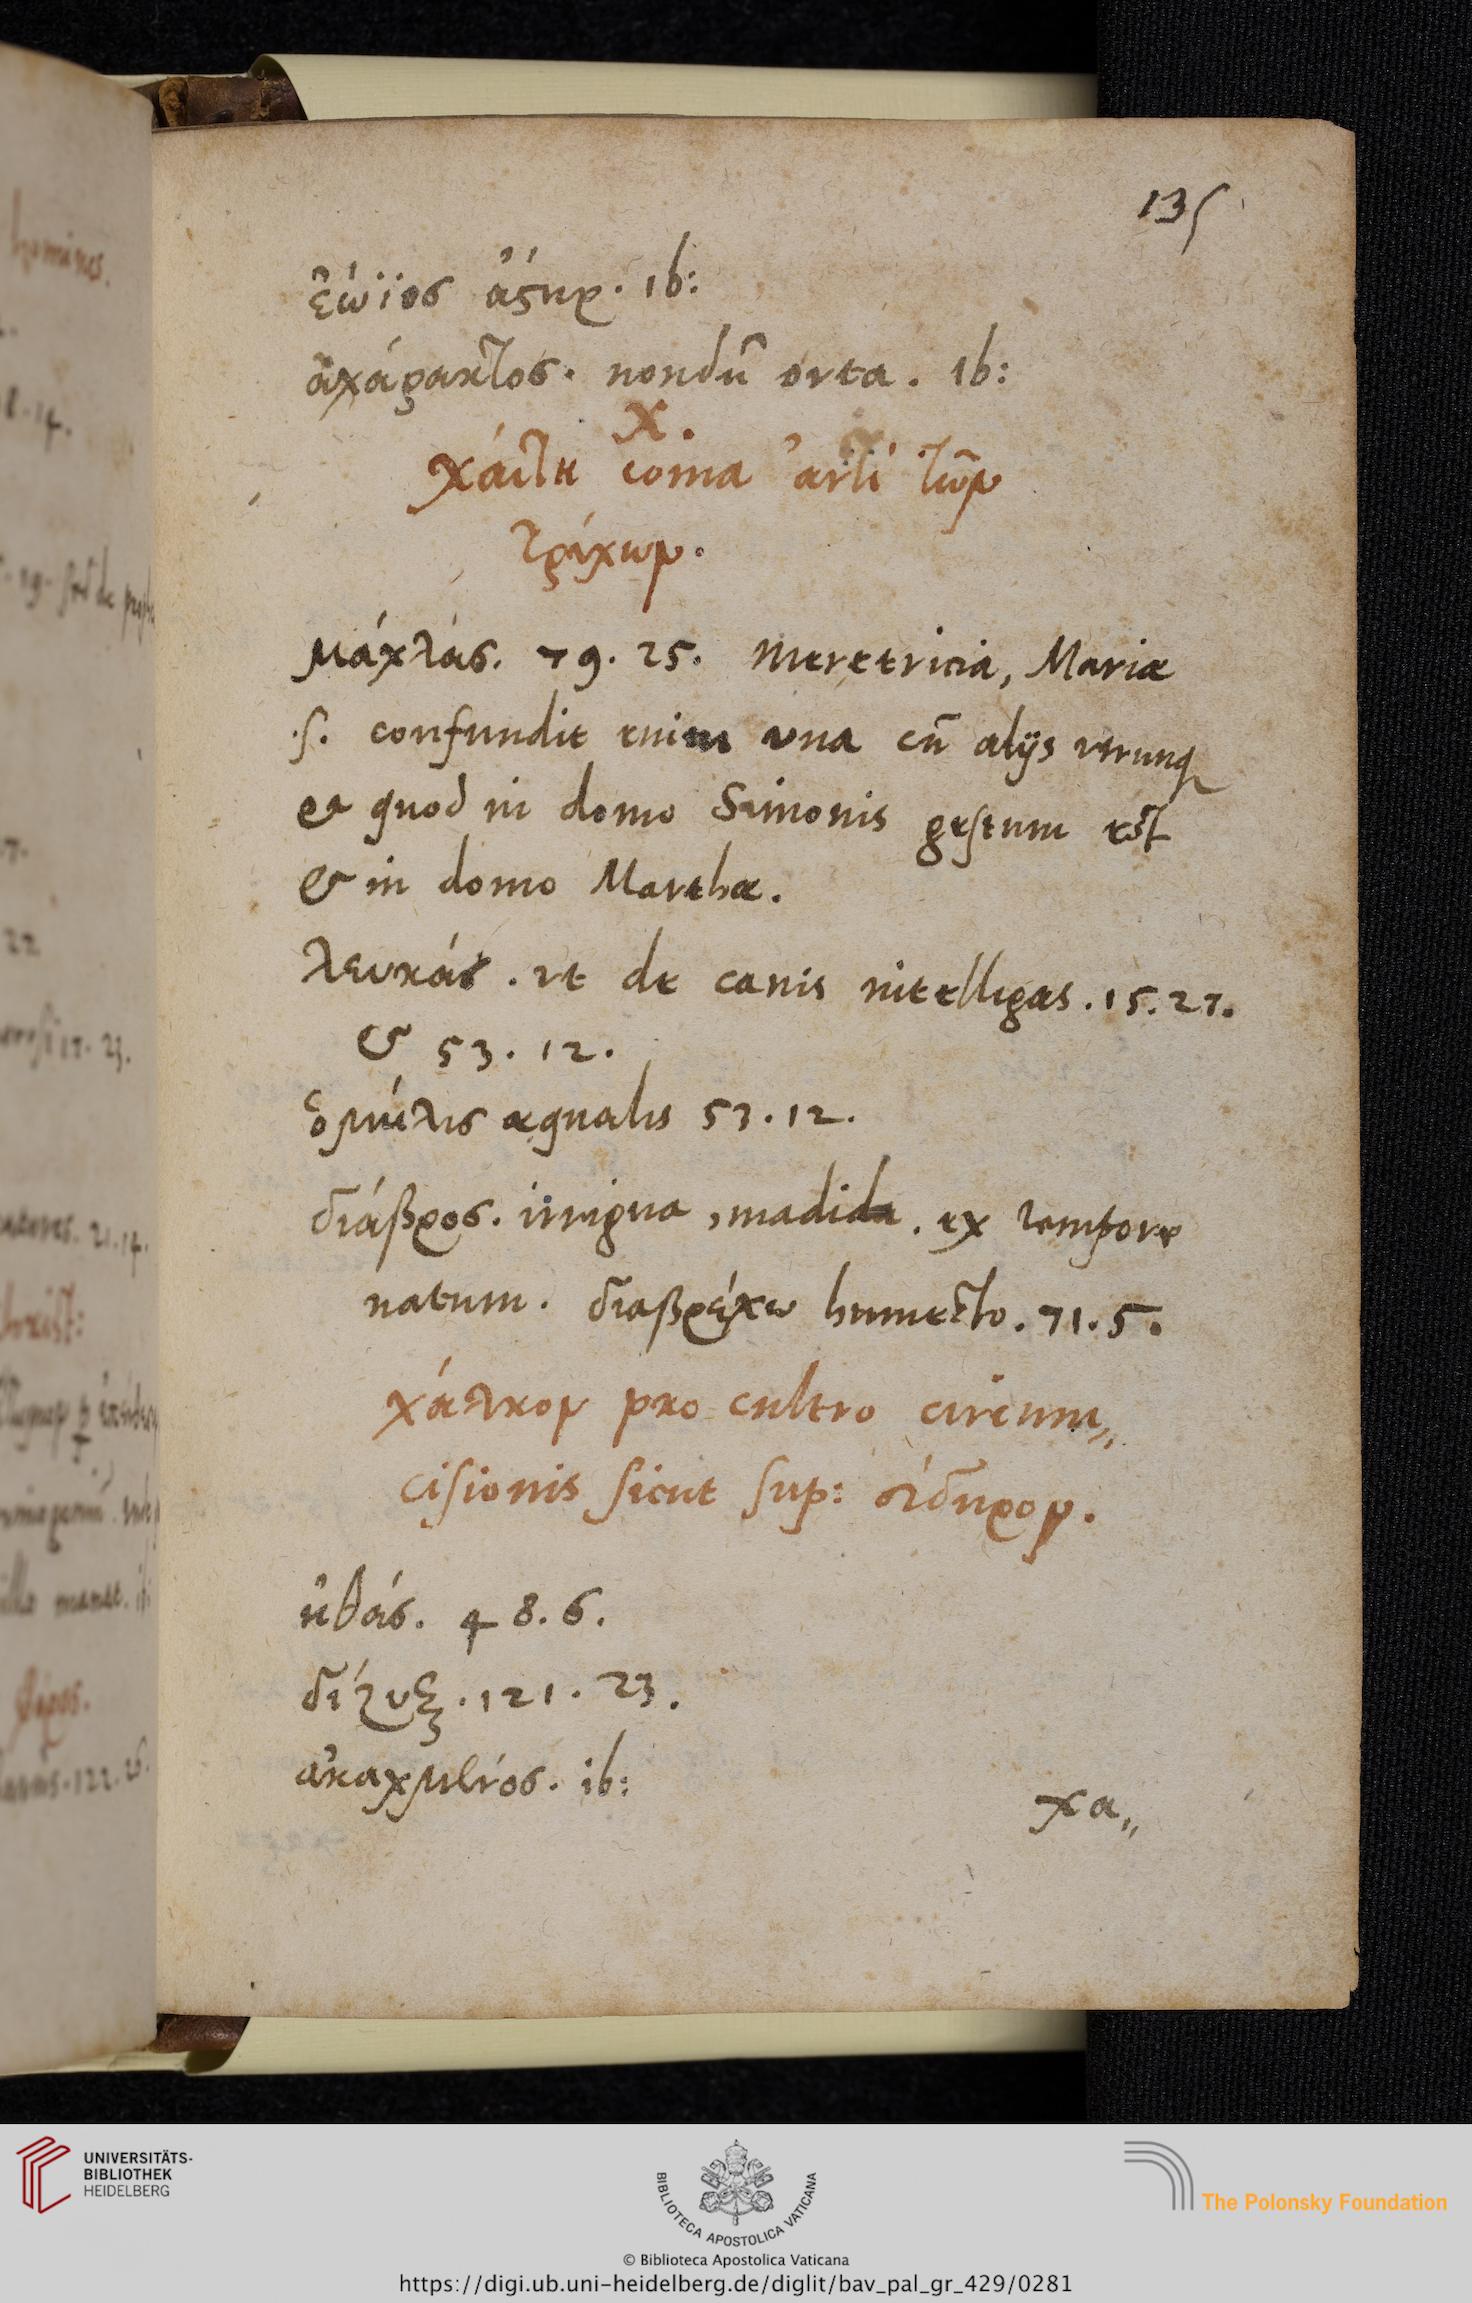 135
ἑώϊος ἀςηρ. ib:
ἀχάρακτος. nondũ orta. ib:
χ.
χάιτη coma ἀντὶ τῶν
τρίχων.
μάχλάς. 79. 25. Meretricia, Mariæ
.s. confundit enim una cũ alijs utrunq
et quod in domo Simonis gestum est
& in domo Marthæ.
λευκάς. ut de canis intelligas. 15. 27.
& 53. 12.
ὁμήλις æqualis 53. 12.
διάβρος. irrigua, madida. ex tempore
natum. διαβρέχω humecto. 71. 5.
χάλκον pro cultro circum„
cisionis sicut sup: σίδηρον.
ἠθάς. 48. 6.
δίζυξ. 121. 23.
ἀκαχμένος. ib:
χα„
homines.
14.
22
23.
21. 14.
122. 26.
UNIVERSITÄTS-
BIBLIOTHEK
HEIDELBERG
BIBLIOTECA APOSTOLICA VATICANA
© Biblioteca Apostolica Vaticana
The Polonsky Foundation
https://digi.ub.uni-heidelberg.de/diglit/bav_pal_gr_429/0281